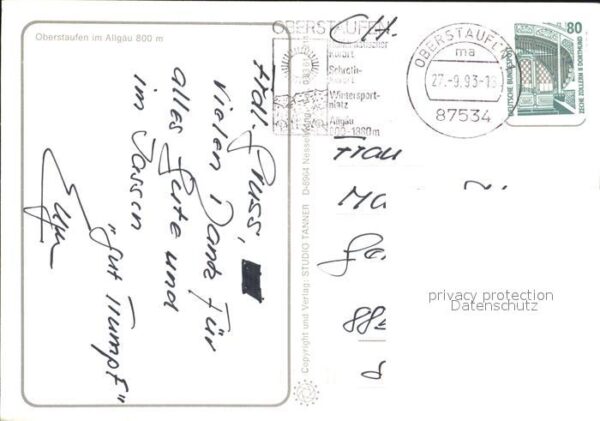 Oberstaufen im Allgäu 800 m
Hall. Gruss,
Vielen Dank für
alles Gute und
im Jassen
"gut Trumpf"
Copyright und Verlag: STUDIO TANNER D-8964 Nesselwang
OBERSTAUFEN
Schroth-
kurort
Wintersport-
platz
Allgäu
800-1880m
OBERSTAUFEN
ma
27.-9.93-
87534
80
DEUTSCHE BUNDESPOST
ZECHE ZOLLERN II DORTMUND
CH.
Frau
Ma
885
privacy protection
Datenschutz